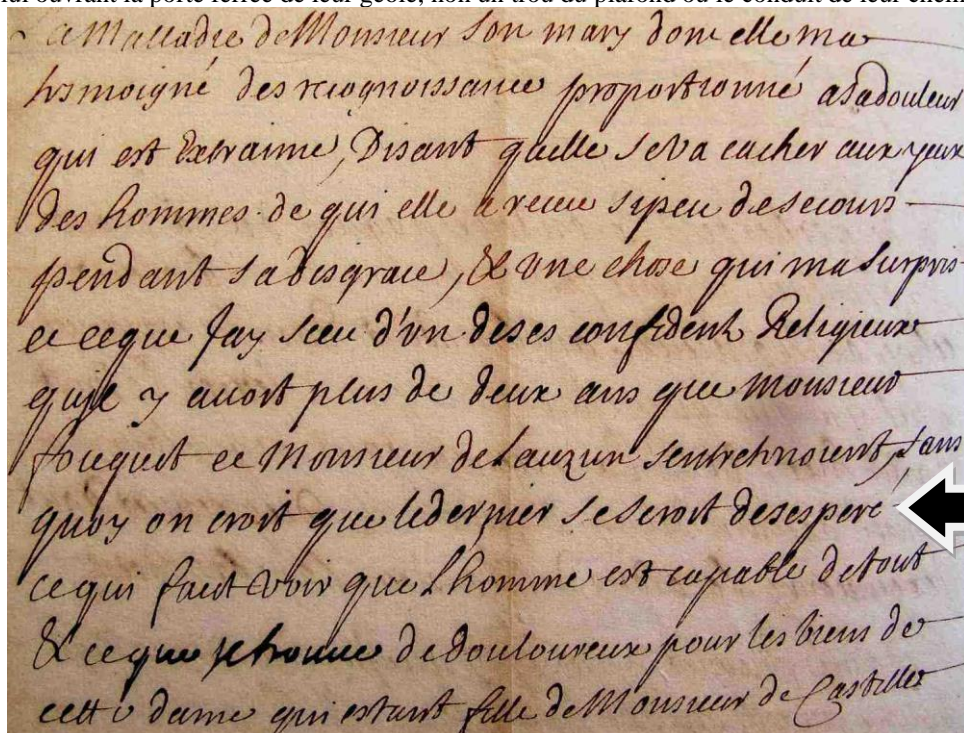 lui ouvrant la porte ferrée de leur geôle, non un trou du plafond ou le conduit de leur
la Malladie de Monsieur Son mary donc elle ma
tesmoigné des recognoissance proportionné a sa douleur
qui est Extraime, Disant quelle Se va cacher aux yeux
des hommes de qui elle a receu si peu de secours
pendant sa disgrace, & Une chose qui ma Surpris
et ce que Jay sceu d'un de ses confident Religieux
quil y avoit plus de deux ans que Monsieur
fouquet et Monsieur de Lauzun sentretenoient, sans
quoy on croit que le dernier se seroit desesperé
ce qui fait voir que Lhomme est capable de tout
& ce que je trouve de douloureux pour les biens de
cette dame qui estant fille de Monsieur de Castille